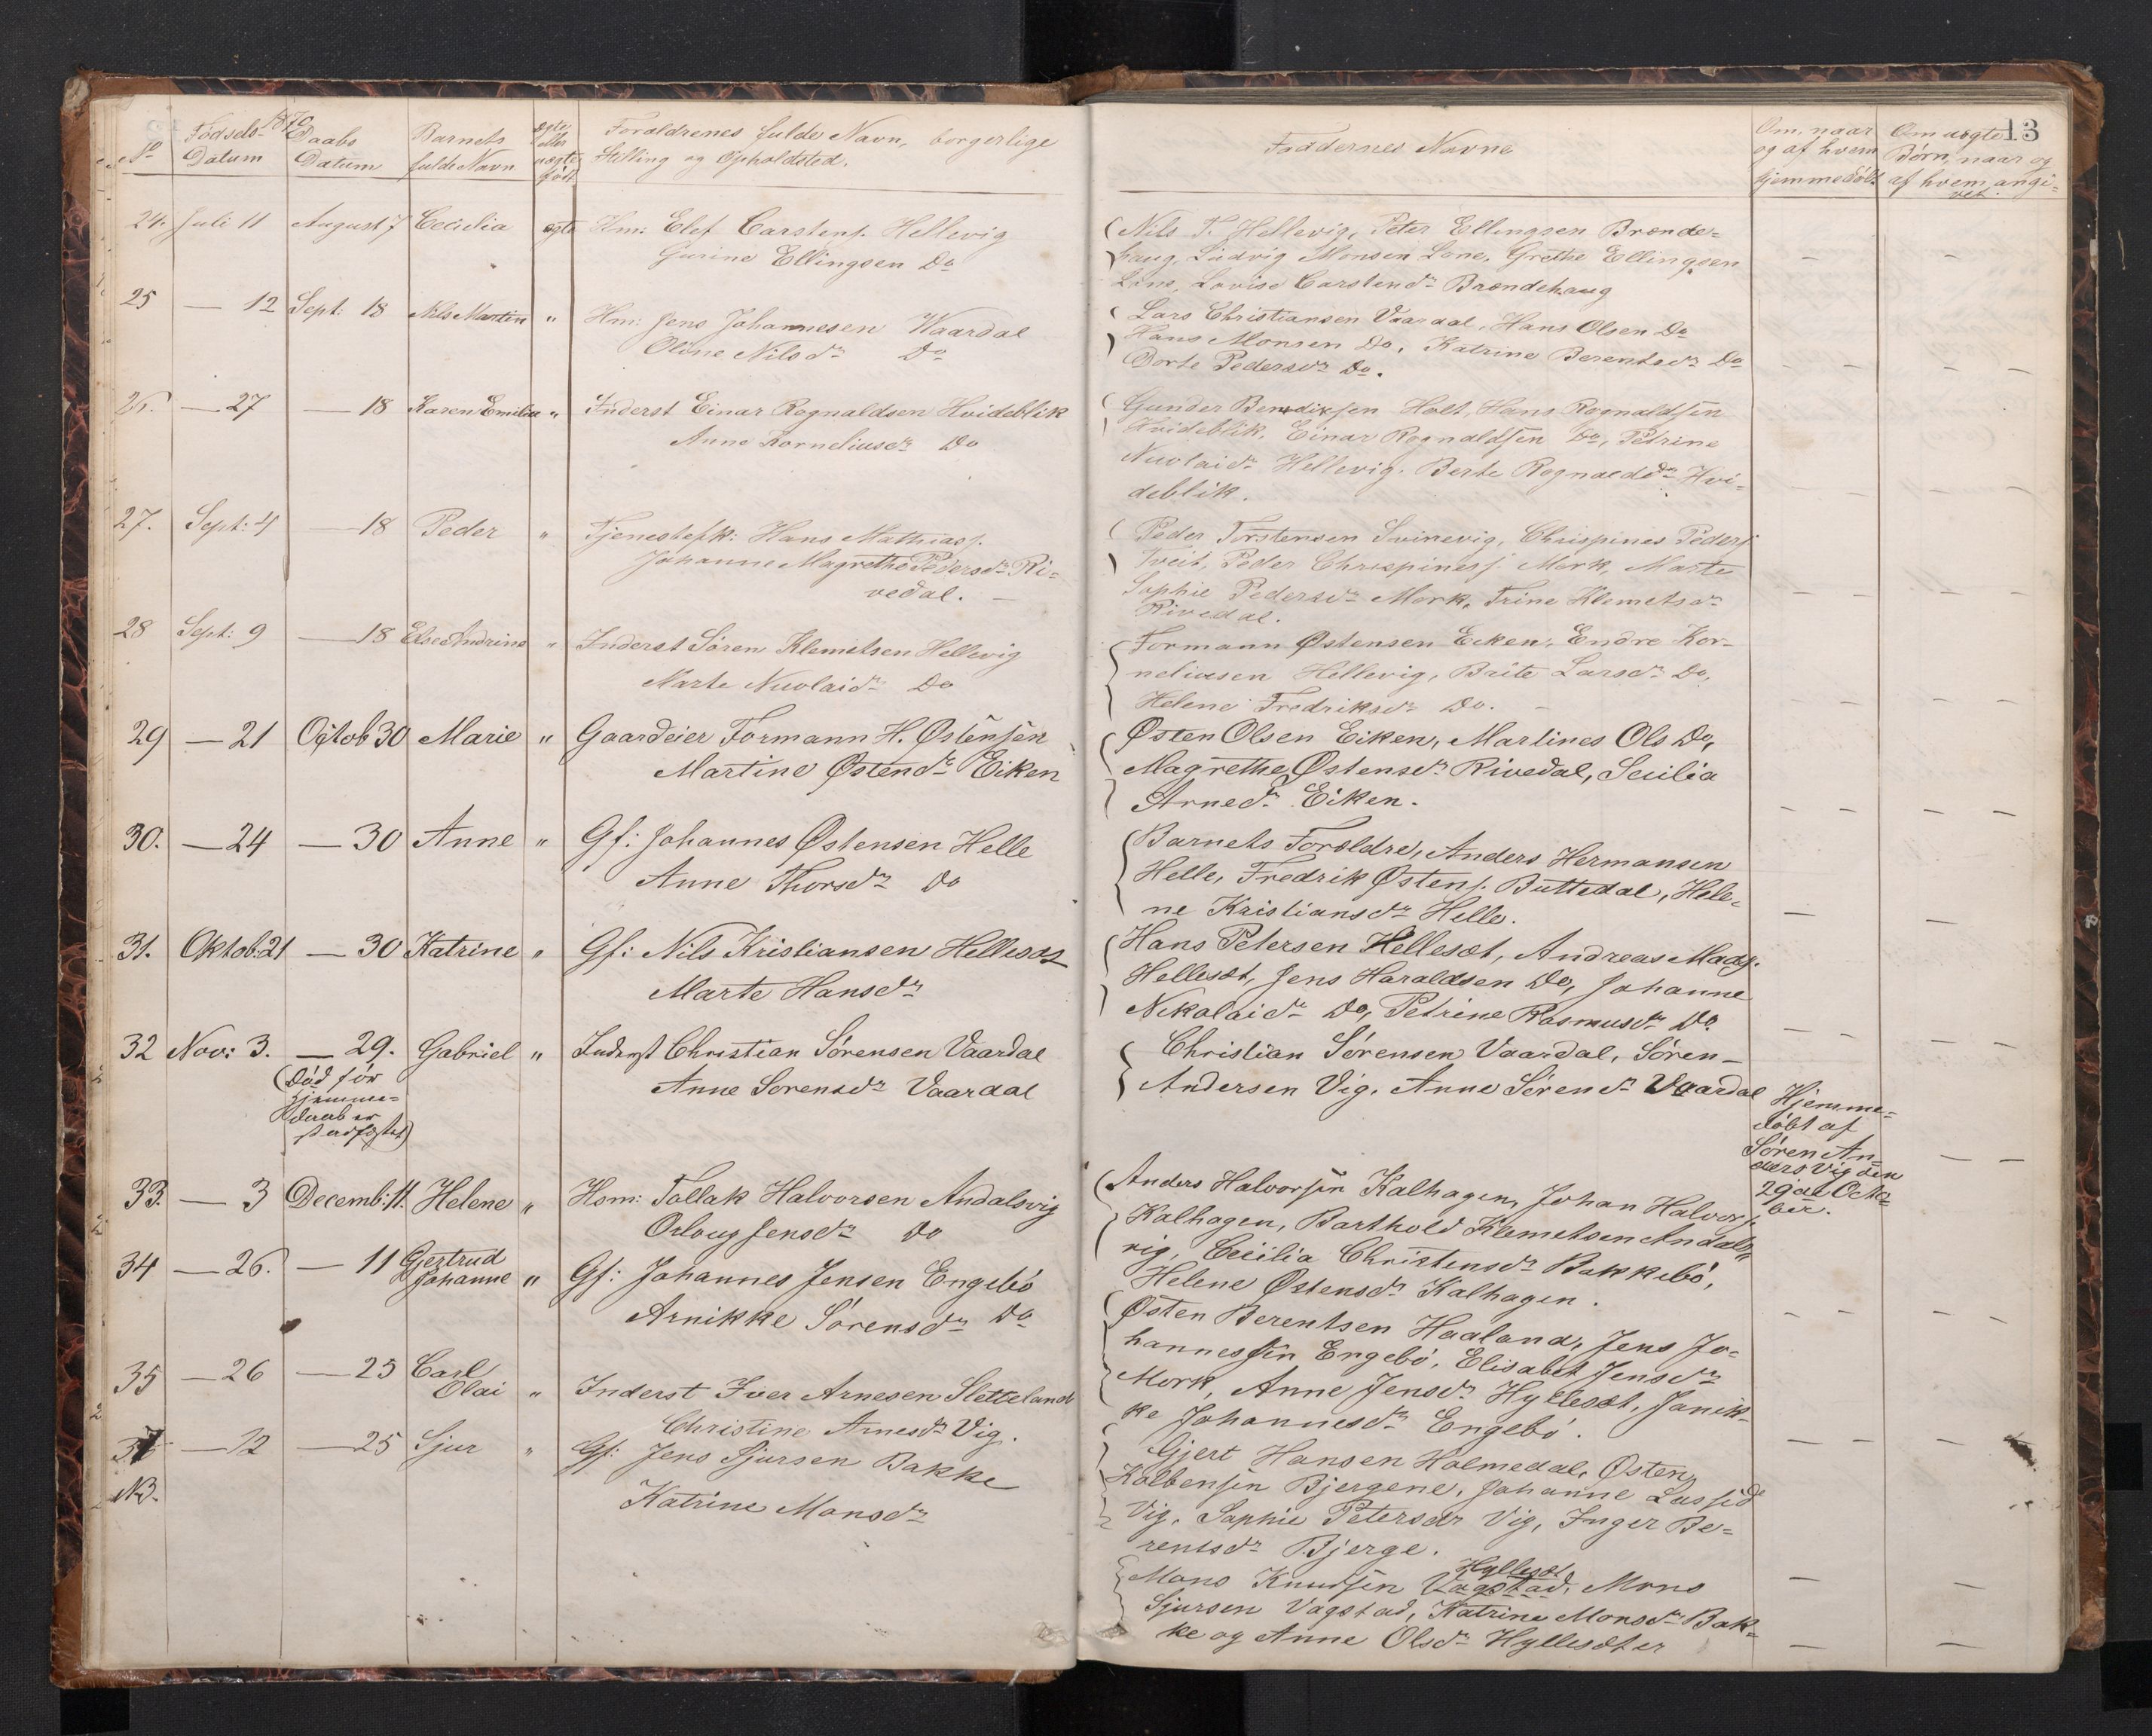 1870
13
No
Fødsels-
Datum
Daabs
Datum
Barnets
fulde Navn
Ægte
eller
uægte
født
Forældrenes fulde Navn, borgerlige
Stilling og Opholdsted.
Faddernes Navne
Om, naar
og af hvem
hjemmedøbt
Om uægte
Børn, naar og
af hvem angi-
vet.
24. Juli 11 August 7 Cecilia ægte Hm: Elef Carstens. Hellevig
Gurine Ellingsen Do
Nils T. Hellevig, Peter Ellingsen Brænde-
haug, Ludvig Monsen Lone, Grethe Ellingsen
Lone, Lovise Carstensdr Brændehaug
25 — 12 Sept: 18 Nils Martin " Hm: Jens Johannesen Waardal
Oline Nilsdr Do
Lars Christiansen Vaardal, Hans Olsen Do
Hans Monsen Do, Katrine Berentsdr Do
Dorte Pedersdr Do.
26. — 27 — 18 Karen Emilia " Inderst Einar Rognaldsen Hvideblik
Anne Korneliusdr Do
Gunder Bendiksen Holt, Hans Rognaldsen
Hvideblik, Einar Rognaldsen Do, Petrine
Nicolaidr Hellevig. Berte Rognaldsdr Hvi-
deblik.
27. Sept: 4 — 18 Peder " Tjenestefk: Hans Mathiass.
Johanne Magrethe Pedersdr Ri-
vedal. —
Peder Torstensen Svinevig, Chrispines Peders.
Tveit, Peder Chrispiness. Mork, Marte
Sophie Pedersdr Mork, Trine Klemetsdr
Rivedal.
28 Sept: 9 — 18 Else Andrine " Inderst Søren Klemetsen Hellevig
Marte Nicolaidr Do
Tormann Østensen Eiken, Endre Kor-
neliusen Hellevig, Brite Larsdr Do,
Helene Fredriksdr Do. —
29 — 21 Octob 30 Marie " Gaardeier Tormann H. Østensen
Martine Østendr Eiken
Østen Olsen Eiken, Martines Ols Do,
Magrethe Østensdr Rivedal, Secilia
Arnedr Eiken.
30. — 24 — 30 Anne " Gf: Johannes Østensen Helle
Anne Thorsdr Do
Barnets Forældre, Anders Hermansen
Helle, Fredrik Østens. Buttedal, Hele-
ne Kristiansdr Helle.
31. Oktob: 21 — 30 Katrine " Gf: Nils Kristiansen Hellesæt
Marte Hansdr
Hans Petersen Hellesæt, Andreas Mads.
Hellesæt, Jens Haraldsen Do, Johanne
Nikolaidr Do, Petrine Rasmusdr Do.
32 Nov: 3. — 29. Gabriel " Inderst Christian Sørensen Vaardal
Anne Sørensdr Vaardal
(Død før
hjemme-
daab er
stadfæstet)
Christian Sørensen Vaardal, Søren
Andersen Vig, Anne Sørendr Vaardal
Hjemme-
døbt af
Søren An-
ders Vig den
29de Octo-
ber.
33. — 3 Decemb: 11. Helene " Hsm: Tollak Halvorsen Andalsvig
Orloug Jensdr Do
Anders Halvorsen Kalhagen, Johan Halvors.
Kalhagen, Barthold Klemetsen Andals-
vig, Cecilia Christensdr Bakkebø,
Helene Østensdr Kalhagen.
34 — 26. — 11 Gertrud
Johanne " Gf: Johannes Jensen Engebø
Arnikke Sørensdr Do
Østen Berentsen Haaland, Jens Jo-
hannessen Engebø, Elisabet Jensdr
Mork, Anne Jensdr Hyllesæt, Janik-
ke Johannesdr Engebø.
35 — 26 — 25 Carl
Olai " Inderst Iver Arnesen Sletteland
Christine Arnesdr Vig.
Gjert Hansen Holmedal, Østen
Kolbensen Bjergene, Johanne
Vig, Sophie Petersdr Vig, Inger Be-
rentsdr Bjerge.
37 — 12 — 25 Sjur " Gf: Jens Sjursen Bakke
NB.
Katrine Monsdr
Hyllesæt
Mons Knudsen Vagstad, Mons
Sjursen Vagstad, Katrine Monsdr Bak-
ke og Anne Olsdr Hyllesæter